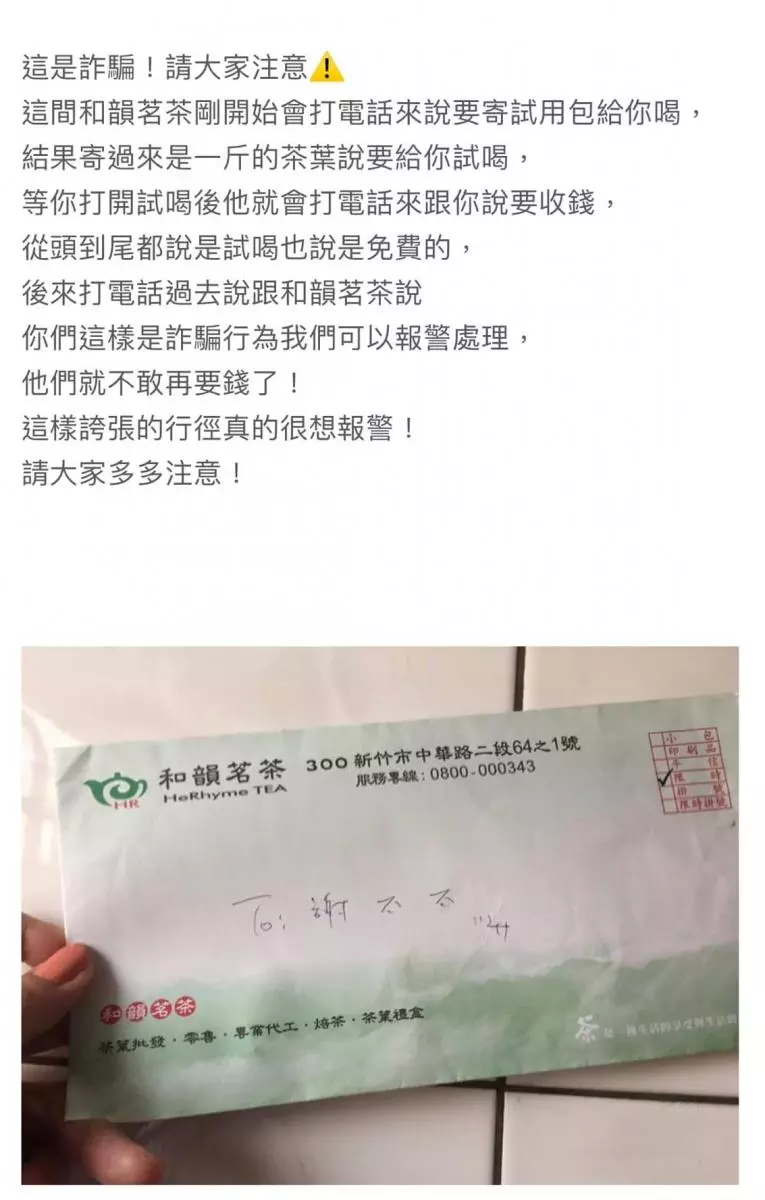 這是詐騙！請大家注意⚠️
這間和韻茗茶剛開始會打電話來說要寄試用包給你喝，
結果寄過來是一斤的茶葉說要給你試喝，
等你打開試喝後他就會打電話來跟你說要收錢，
從頭到尾都說是試喝也說是免費的，
後來打電話過去說跟和韻茗茶說
你們這樣是詐騙行為我們可以報警處理，
他們就不敢再要錢了！
這樣誇張的行徑真的很想報警！
請大家多多注意！
和韻茗茶
HeRhyme TEA
HR
300 新竹市中華路二段64之1號
服務專線：0800-000343
小包
印刷品
平信
✓限時
掛號
限時掛號
To: 謝
和韻茗茶
茶葉批發．零售．專業代工．焙茶．茶葉禮盒
茶是一種生活的享受與生活的